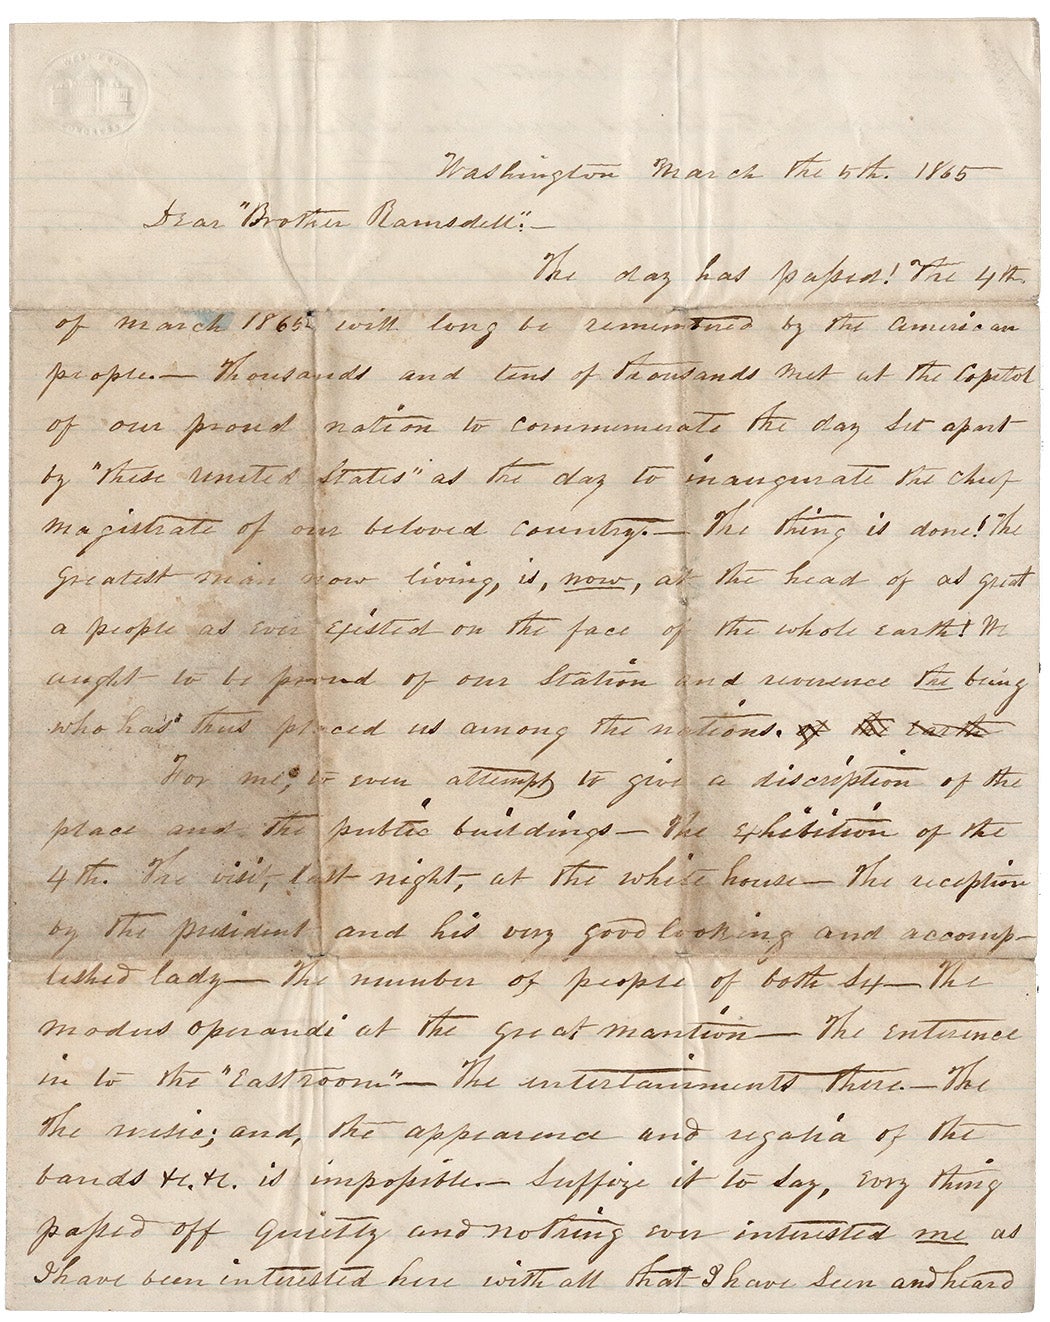 Washington March the 5th. 1865
Dear "Brother Ramsdell":—
The day has passed! The 4th
of march 1865 will long be remembered by the american
people.— Thousands and tens of thousands met at the Capitol
of our proud nation to commemerate the day set apart
by "these united States" as the day to inaugurate the chief
magistrate of our beloved country.— The thing is done! The
greatest man now living, is, now, at the head of as great
a people as ever existed on the face of the whole earth! We
aught to be proud of our Station and reverence the being
who has thus placed us among the nations. of the earth
For me, to even attempt to give a discription of the
place and the public buildings— The exhibition of the
4th. The visit, last night, at the white house— The reception
by the president and his very good looking and accomp-
lished lady— The number of people of both sex— The
modus operandi at the great mantion— The enterence
in to the "East room"— The entertainments there.— The
the music; and, the appearence and regalia of the
bands &c. &c. is impossible.— Suffize it to say, evry thing
passed off quietly and nothing ever interested me as
I have been interested here with all that I have seen and heard